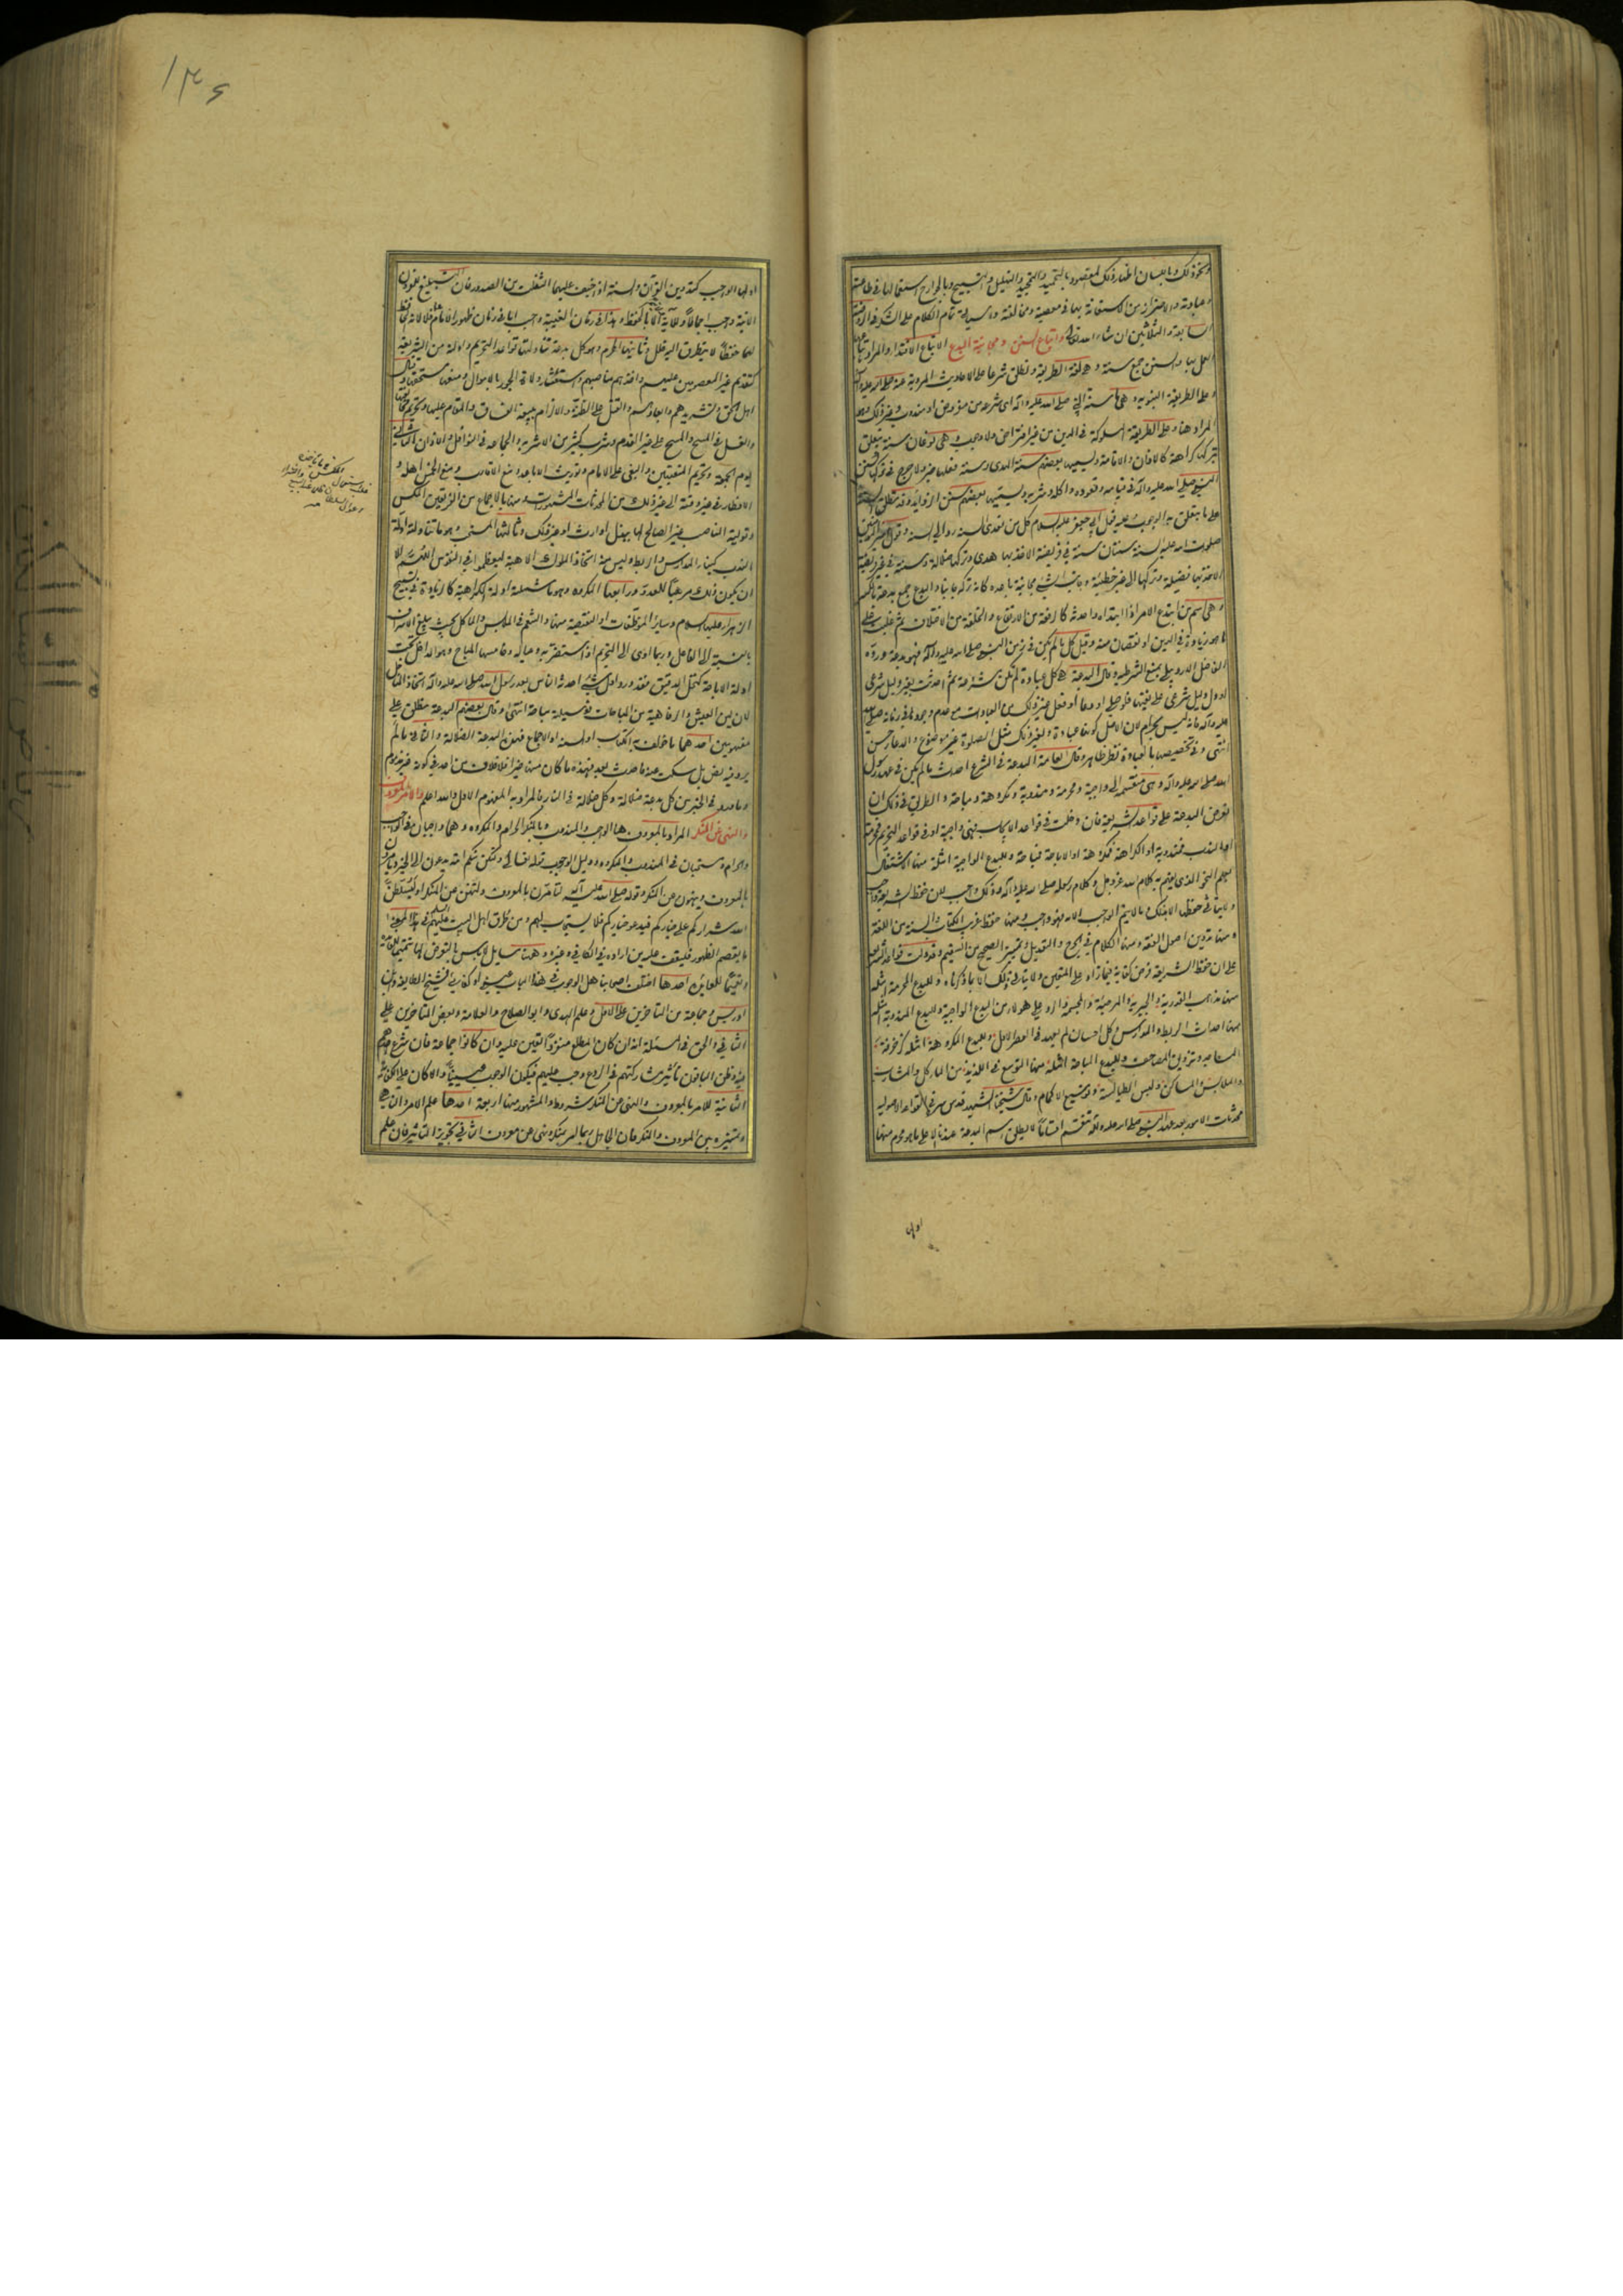 ونحو ذلك وباللسان اظهار ذلك المقصود بالتحميد والتمجيد والتهليل والتسبيح وبالجوارح استعمالها في طاعته
وعبادته والاحتراز من الاستعانة بها في معصيته ومخالفته وسيأتي تمام الكلام على الشكر في الروضة
السابعة والثلاثين ان شاء الله تعالى واتباع السنن ومجانبة البدع الاتباع الاقتداء والمراد بها
العمل بها والسنن جمع سنة وهي لغة الطريقة وتطلق شرعا على الاحاديث المروية عنه صلى الله عليه وآله
وعلى الطريقة النبوية وهي ما سنه النبي صلى الله عليه وآله اي شرعه من مفروض او مندوب وغير ذلك وهو
المراد هنا وعلى الطريقة المسلوكة في الدين من غير افتراض ولا وجوب وهي نوعان سنة يتعلق
بتركها كراهة كالاذان والاقامة ويسميها بعضهم سنة الهدى وسنة فعلها خير ولا حرج في تركها كسنن
النبي صلى الله عليه وآله في قيامه وقعوده واكله وشربه ويسميها بعضهم سنن الزوائد وقد تطلق السنة
على ما يتعلق به الوجوب وعليه قول ابي جعفر عليه السلام كل من تعدى السنة رد الى السنة وقول امير المؤمنين
صلوات الله عليه السنة سنتان سنة في فريضة الاخذ بها هدى وتركها ضلالة وسنة في غير فريضة
الاخذ بها فضيلة وتركها الى غير خطيئة وجانب الشيء مجانبة باعده كانه تركه جانبا والبدع جمع بدعة بالكسر
وهي اسم من ابتدع الامر اذا ابتداه واحدثه كالرفعة من الارتفاع والخلفة من الاختلاف ثم غلبت على
ما هو زيادة في الدين او نقصان منه وقيل كل ما لم يكن في زمن النبي صلى الله عليه وآله فهو بدعة ورده
الفاضل الاردبيلي بمنع الشرطية وقال البدعة هي كل عبادة لم تكن مشروعة ثم احدثت بغير دليل شرعي
او دل دليل شرعي على نفيها فلو صلى او دعا او فعل غير ذلك من العبادات مع عدم وجودها في زمانه صلى الله
عليه وآله فانه ليس بحرام لان الاصل كونها عبادة ولغير ذلك مثل الصلوة خير موضوع والدعاء حسن
انتهى وفي تخصيصها بالعبادة نظر ظاهر وقال العامة البدعة في الشرع احداث ما لم يكن في عهد رسول
الله صلى الله عليه وآله وهي منقسمة الى واجبة ومحرمة ومندوبة ومكروهة ومباحة والطريق في ذلك ان
تعرض البدعة على قواعد الشريعة فان دخلت في قواعد الايجاب فهي واجبة او في قواعد التحريم فمحرمة
او الندب فمندوبة او الكراهة فمكروهة او الاباحة فمباحة وللبدع الواجبة امثلة منها الاشتغال
بعلم النحو الذي يفهم به كلام الله عز وجل وكلام رسوله صلى الله عليه وآله وذلك واجب لان حفظ الشريعة واجب
ولا يتاتى حفظها الا بذلك وما لا يتم الواجب الا به فهو واجب ومنها حفظ غريب الكتاب والسنة من اللغة
ومنها تدوين اصول الفقه ومنها الكلام في الجرح والتعديل وتمييز الصحيح من السقيم وقد دلت قواعد الشريعة
على ان حفظ الشريعة فرض كفاية فيما زاد على المتعين ولا يتاتى ذلك الا بما ذكرناه وللبدع المحرمة امثلة
منها مذاهب القدرية والجبرية والمرجئة والمجسمة والرد على هؤلاء من البدع الواجبة وللبدع المندوبة امثلة
منها احداث الربط والمدارس وكل احسان لم يعهد في العصر الاول وللبدع المكروهة امثلة كزخرفة
المساجد وتزويق المصاحف وللبدع المباحة امثلة منها التوسع في اللذيذ من المآكل والمشارب
والملابس والمساكن ولبس الطيالسة وتوسيع الاكمام وقال شيخنا الشهيد قدس سره في القواعد الاصولية
محدثات الامور بعد عهد النبي صلى الله عليه وآله تنقسم اقساما لا يطلق اسم البدعة عندنا الا على ما هو محرم منها
اولها
١٣٤
اولها الواجب كتدوين القرآن والسنة اذ خيف عليهما التفلت من الصدور فان التبليغ للقرون
الاتية واجب اجماعا وللآية ولا يتم الا بالحفظ وهذا في زمان الغيبة واجب اما في زمان ظهور الامام فلا لانه الحافظ
لها حفظا لا يتطرق اليه خلل ثانيها المحرم وهو كل بدعة تناولتها قواعد التحريم وادلته من الشريعة
كتقديم غير المعصومين عليهم واخذهم مناصبهم واستئثار ولاة الجور بالاموال ومنعها مستحقها وقتال
اهل الحق وتشريدهم وابعادهم والقتل على الظنة والالزام ببيعة الفساق والمقام عليها وتحريم مخالفتها
والغسل في المسح والمسح على غير القدم وشرب كثير من الاشربة والجماعة في النوافل والاذان الثاني
يوم الجمعة وتحريم المتعتين والبغي على الامام وتوريث الاباعد ومنع الاقارب ومنع الخمس اهله و
الافطار في غير وقته الى غير ذلك من المحدثات المشهورات ومنها بالاجماع من الفريقين المكس
وتولية المناصب غير الصالح لها ببذل او ارث او غير ذلك وثالثها المستحب وهو ما تناولته ادلة
الندب كبناء المدارس والربط وليس منه اتخاذ الملوك الاهبة ليعظموا في النفوس اللهم الا
ان يكون ذلك مرهبا للعدو ورابعها المكروه وهو ما شملته ادلة الكراهية كالزيادة في تسبيح
الزهراء عليها السلام وسائر الموظفات او النقيصة منها والتنعم في الملابس والماكل بحيث يبلغ الاسراف
بالنسبة الى الفاعل وربما ادى الى التحريم اذا استضر به وعياله وخامسها المباح وهو الداخل تحت
ادلة الاباحة كنخل الدقيق فقد ورد اول شيء احدثه الناس بعد رسول الله صلى الله عليه وآله اتخاذ المناخل
لان لين العيش والرفاهية من المباحات فوسيلته مباحة انتهى وقال بعضهم البدعة تطلق على
مفهومين احدهما ما خولف به الكتاب او السنة او الاجماع فهذه البدعة الضلالة والثاني ما لم
يرد فيه نص بل سكت عنه فاحدث بعد فهذه ما كان منها خيرا فلا خلاف من احد في كونه غير مذموم
وما ورد في الخبر من كل بدعة ضلالة وكل ضلالة في النار فالمراد به المفهوم الاول والله اعلم والامر بالمعروف
والنهي عن المنكر المراد بالمعروف هنا الواجب والمندوب وبالمنكر الحرام والمكروه وهما واجبان في الواجب
والحرام ومستحبان في المندوب والمكروه ودليل الوجوب قوله تعالى ولتكن منكم امة يدعون الى الخير ويامرون
بالمعروف وينهون عن المنكر وقوله صلى الله عليه وآله لتأمرن بالمعروف ولتنهن عن المنكر او ليسلطن
الله شراركم على خياركم فيدعو خياركم فلا يستجاب لهم ومن طرق اهل البيت عليهم في هذا المعنى
ما يقصم الظهور فليقف عليه من اراده في الكافي وغيره وهنا مسايل لا باس بالتعرض لها تتميما للفائدة
وتعميما للعائدة احدها اختلف اصحابنا هل الوجوب في هذا الباب عيني او كفائي فالشيخ الطايفة وابن
ادريس وجماعة من المتاخرين على الاول وعلم الهدى وابو الصلاح والعلامة وبعض المتاخرين على
الثاني والحق في المسئلة انه ان كان المطلع منفردا تعين عليه وان كانوا جماعة فان شرع احدهم
فيه وظن الباقون تاثير مشاركتهم في الردع وجب عليهم فيكون الوجوب عينيا والا كان على الكفاية
الثانية للامر بالمعروف والنهي عن المنكر شروط والمشهور منها اربعة احدها علم الامر والناهي
والتمييز بين المعروف والمنكر فان الجاهل ربما امر بمنكر ونهى عن معروف الثاني تجويز التاثير فان علم